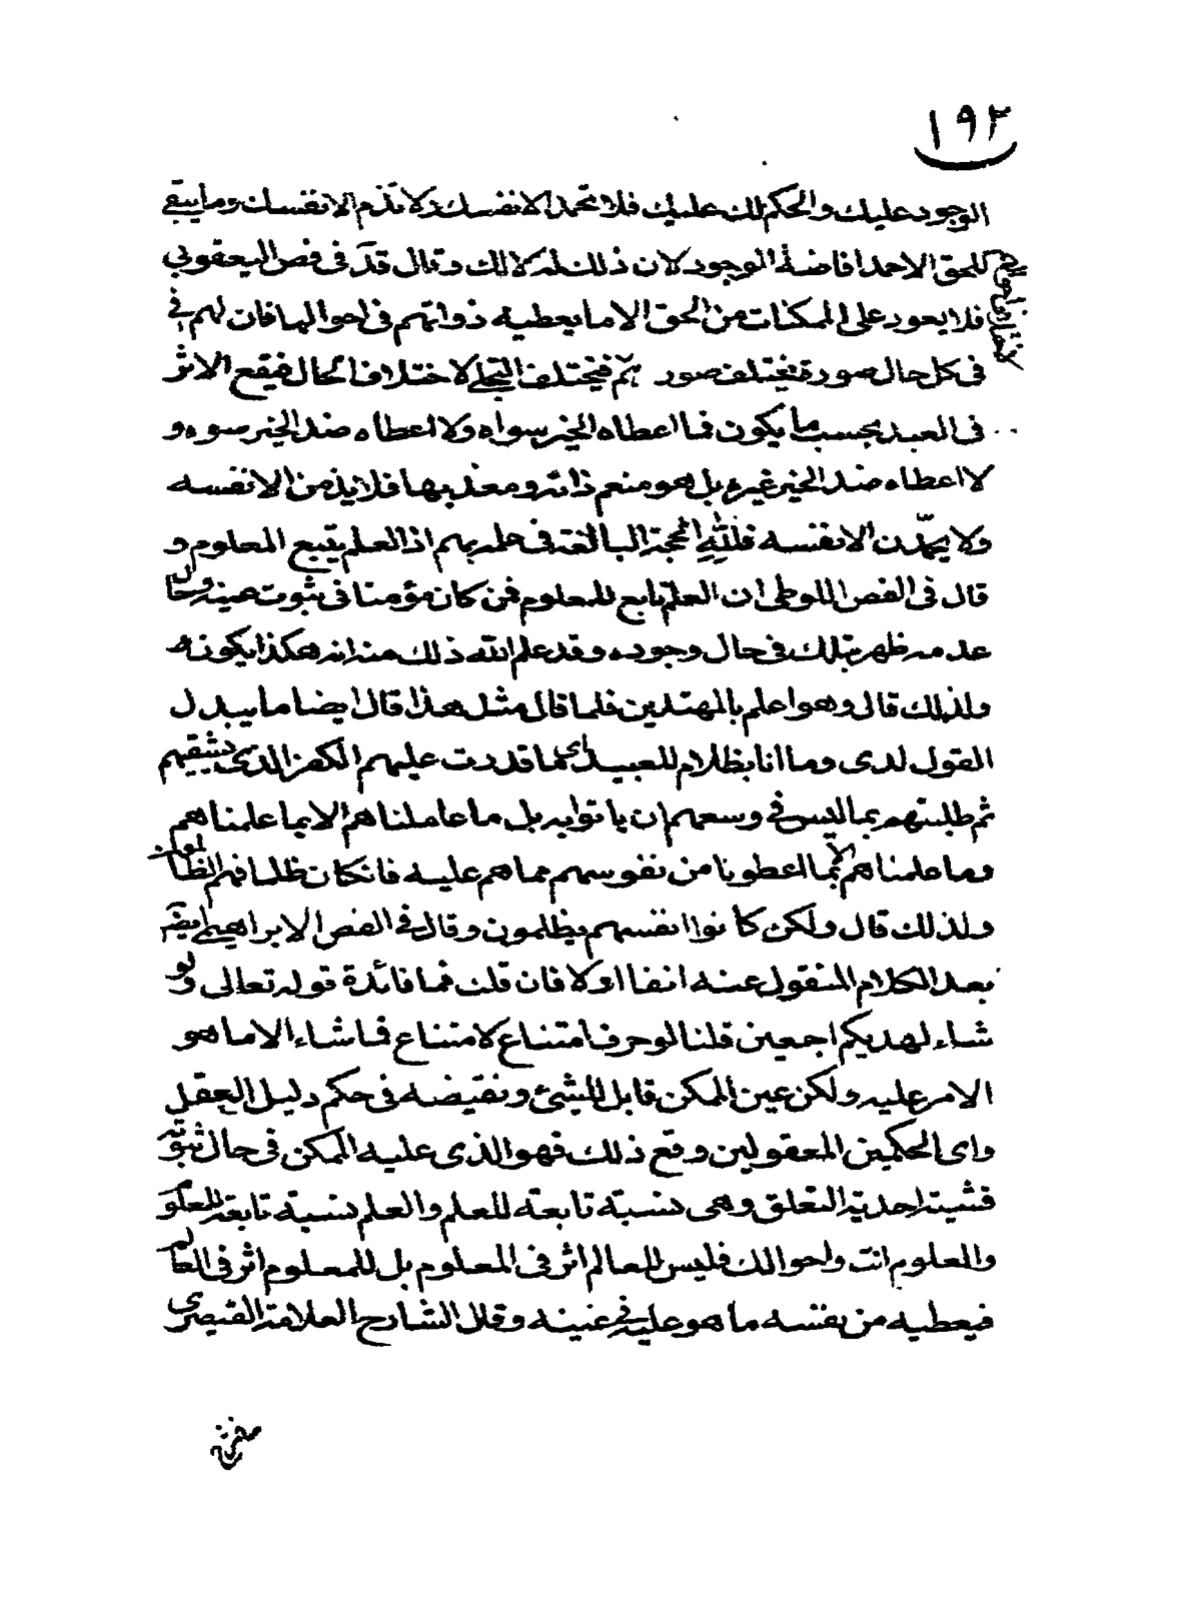 ١٩٢
الوجود عليك والحكم لك عليك فلا تحمد الا نفسك ولا تذم الا نفسك وما يبقى
للحق الا حمد افاضة الوجود لان ذلك له لا لك وقال قدّ فى فص اليعقوبي
فلا يعود على الممكنات من الحق الا ما يعطيه ذواتهم فى احوالها فان لهم
فى كل حال صورة فيختلف صورهم فيختلف التجلى لاختلاف الحال فيقع الاثر
لاختلاف احوالهم
فى العبد بحسب ما يكون فما اعطاه الخير سواه ولا اعطاه ضد الخير سوه و
لا اعطاه ضد الخير غيره بل هو منعم ذاته ومعذبها فلا يذمن الا نفسه
ولا يحمّدن الا نفسه فللّٰه الحجة البالغة فى علمه بهم اذ العلم يتبع المعلوم و
قال فى الفص اللوطى ان العلم تابع للمعلوم فمن كان مؤمنا فى ثبوت عينه وحال
عدمه ظهر بتلك فى حال وجوده وقد علم الله ذلك منه انه هكذا يكون
ولذلك قال وهو اعلم بالمهتدين فلما قال مثل هذا قال ايضا ما يبدل
القول لدى وما انا بظلام للعبيد اى ما قدرت عليهم الكفر الذى يشقيهم
ثم طلبتهم بما ليس فى وسعهم ان ياتوا به بل ما عاملناهم الا بما علمناهم
وما علمناهم الا بما اعطونا من نفوسهم مما هم عليه فانكان ظلما فهم الظالمون
ولذلك قال ولكن كانوا انفسهم يظلمون وقال فى الفص الابراهيمى ايضا
بعد الكلام المنقول عنه انفا اولا فان قلت فما فائدة قوله تعالى ولو
شاء لهديكم اجمعين قلنا لو حرف امتناع لامتناع فما شاء الا ما هو
الامر عليه ولكن عين الممكن قابل للشئ ونقيضه فى حكم دليل العقل
واى الحكمين المعقولين وقع ذلك فهو الذى عليه الممكن فى حال ثبوته
فشيته احدية التعلق وهى نسبة تابعة للعلم والعلم نسبة تابعة للمعلوم
والمعلوم انت واحوالك فليس للعالم اثر فى المعلوم بل للمعلوم اثر فى العالم
فيعطيه من نفسه ما هو عليه فى عينه وقال الشارح العلامة القيصرى